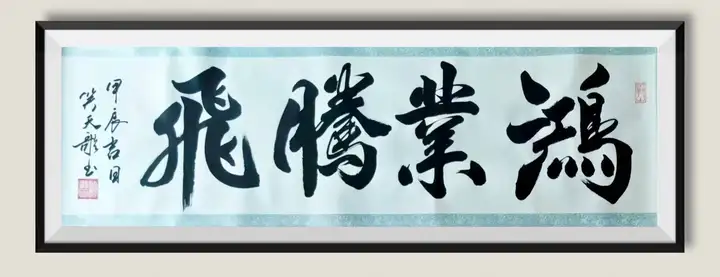 鴻業騰飛
甲辰吉日
天彰书